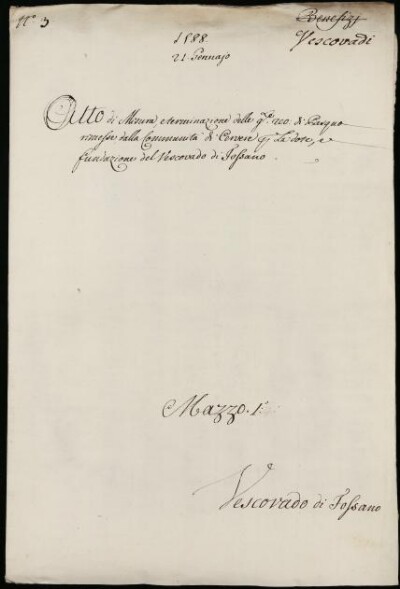 N.° 3
Benefizj
Vescovadi
1588
21 Gennajo
Atto di Misura, e terminazione delle g.te 220. di Pasquo
rimesse dalla Communità di Cervere p. la dote, e
fundazione del Vescovado di Fossano.
Mazzo. 1.°
Vescovado di Fossano